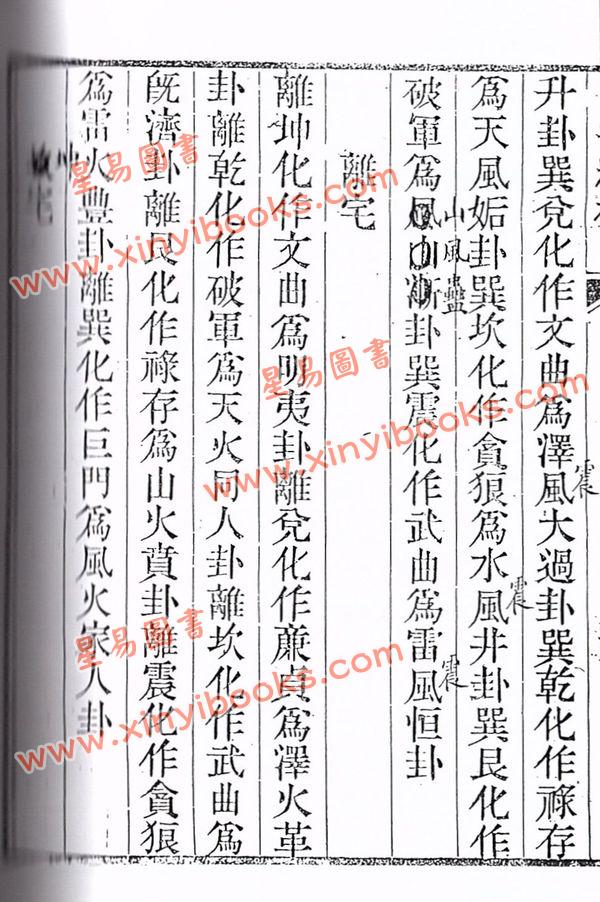 升卦巽兌化作文曲爲澤風大過卦巽乾化作祿存
震
爲天風姤卦巽坎化作貪狼爲水風井卦巽艮化作
震
山風蠱
震
破軍爲風山漸卦巽震化作武曲爲雷風恒卦
離宅
離坤化作文曲爲明夷卦離兌化作亷貞爲澤火革
卦離乾化作破軍爲天火同人卦離坎化作武曲爲
旣濟卦離艮化作祿存爲山火賁卦離震化作貪狼
爲雷火豐卦離巽化作巨門爲風火家人卦
星易圖書
www.xinyibooks.com
星易圖書
www.xinyibooks.com
星易圖書
www.xinyibooks.com